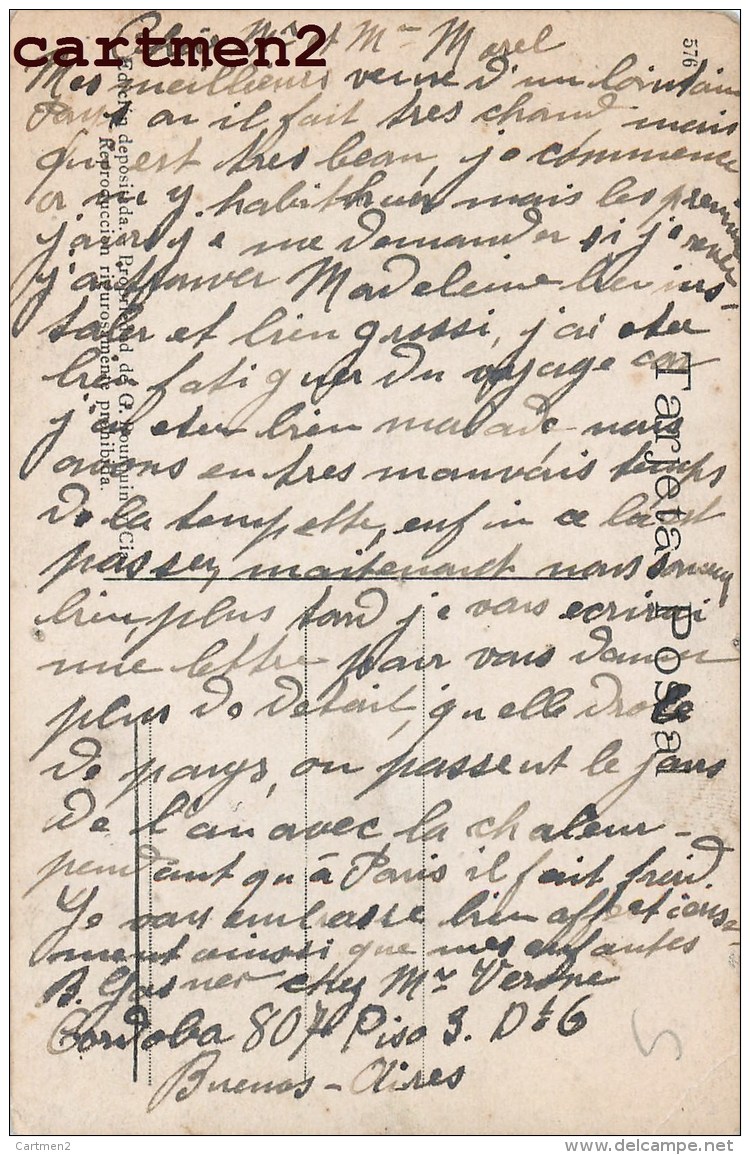 cartmen2
576
Mr et Mme Morel
Mes meilleurs d'un lointain
ou il fait tres chaud mais
qui est tres beau, je commence
a m'y habithuer mais les premier
jours je me demander si je
j'ai trouver Madeleine bien ins-
taler et bien grossi, j'ai eter
bien fatiguer du voyage car
j'ai eter bien malade, nous
avons eu tres mauvais temps
de la tempette, enfin ce la est
passer, maitenant nous sommes
bien, plus tard je vous ecrirai
une lettre pour vous donner
plus de detail, quelle drole
de pays, on passent le jours
de l'an avec la chaleur -
pendant qu'à Paris il fait froid.
Je vous embrasse bien affectieus-
ment ainssi que mes enfantes
B. Gasner chez Mr Verdne
Cordoba 807 Piso 3. Dto 6
Buenos-Aires
5
Tarjeta Postal
Edición deposidada. Propiedad de G. Bourquin Cia
Reproducción rigurosamente prohibida.
Cartmen2